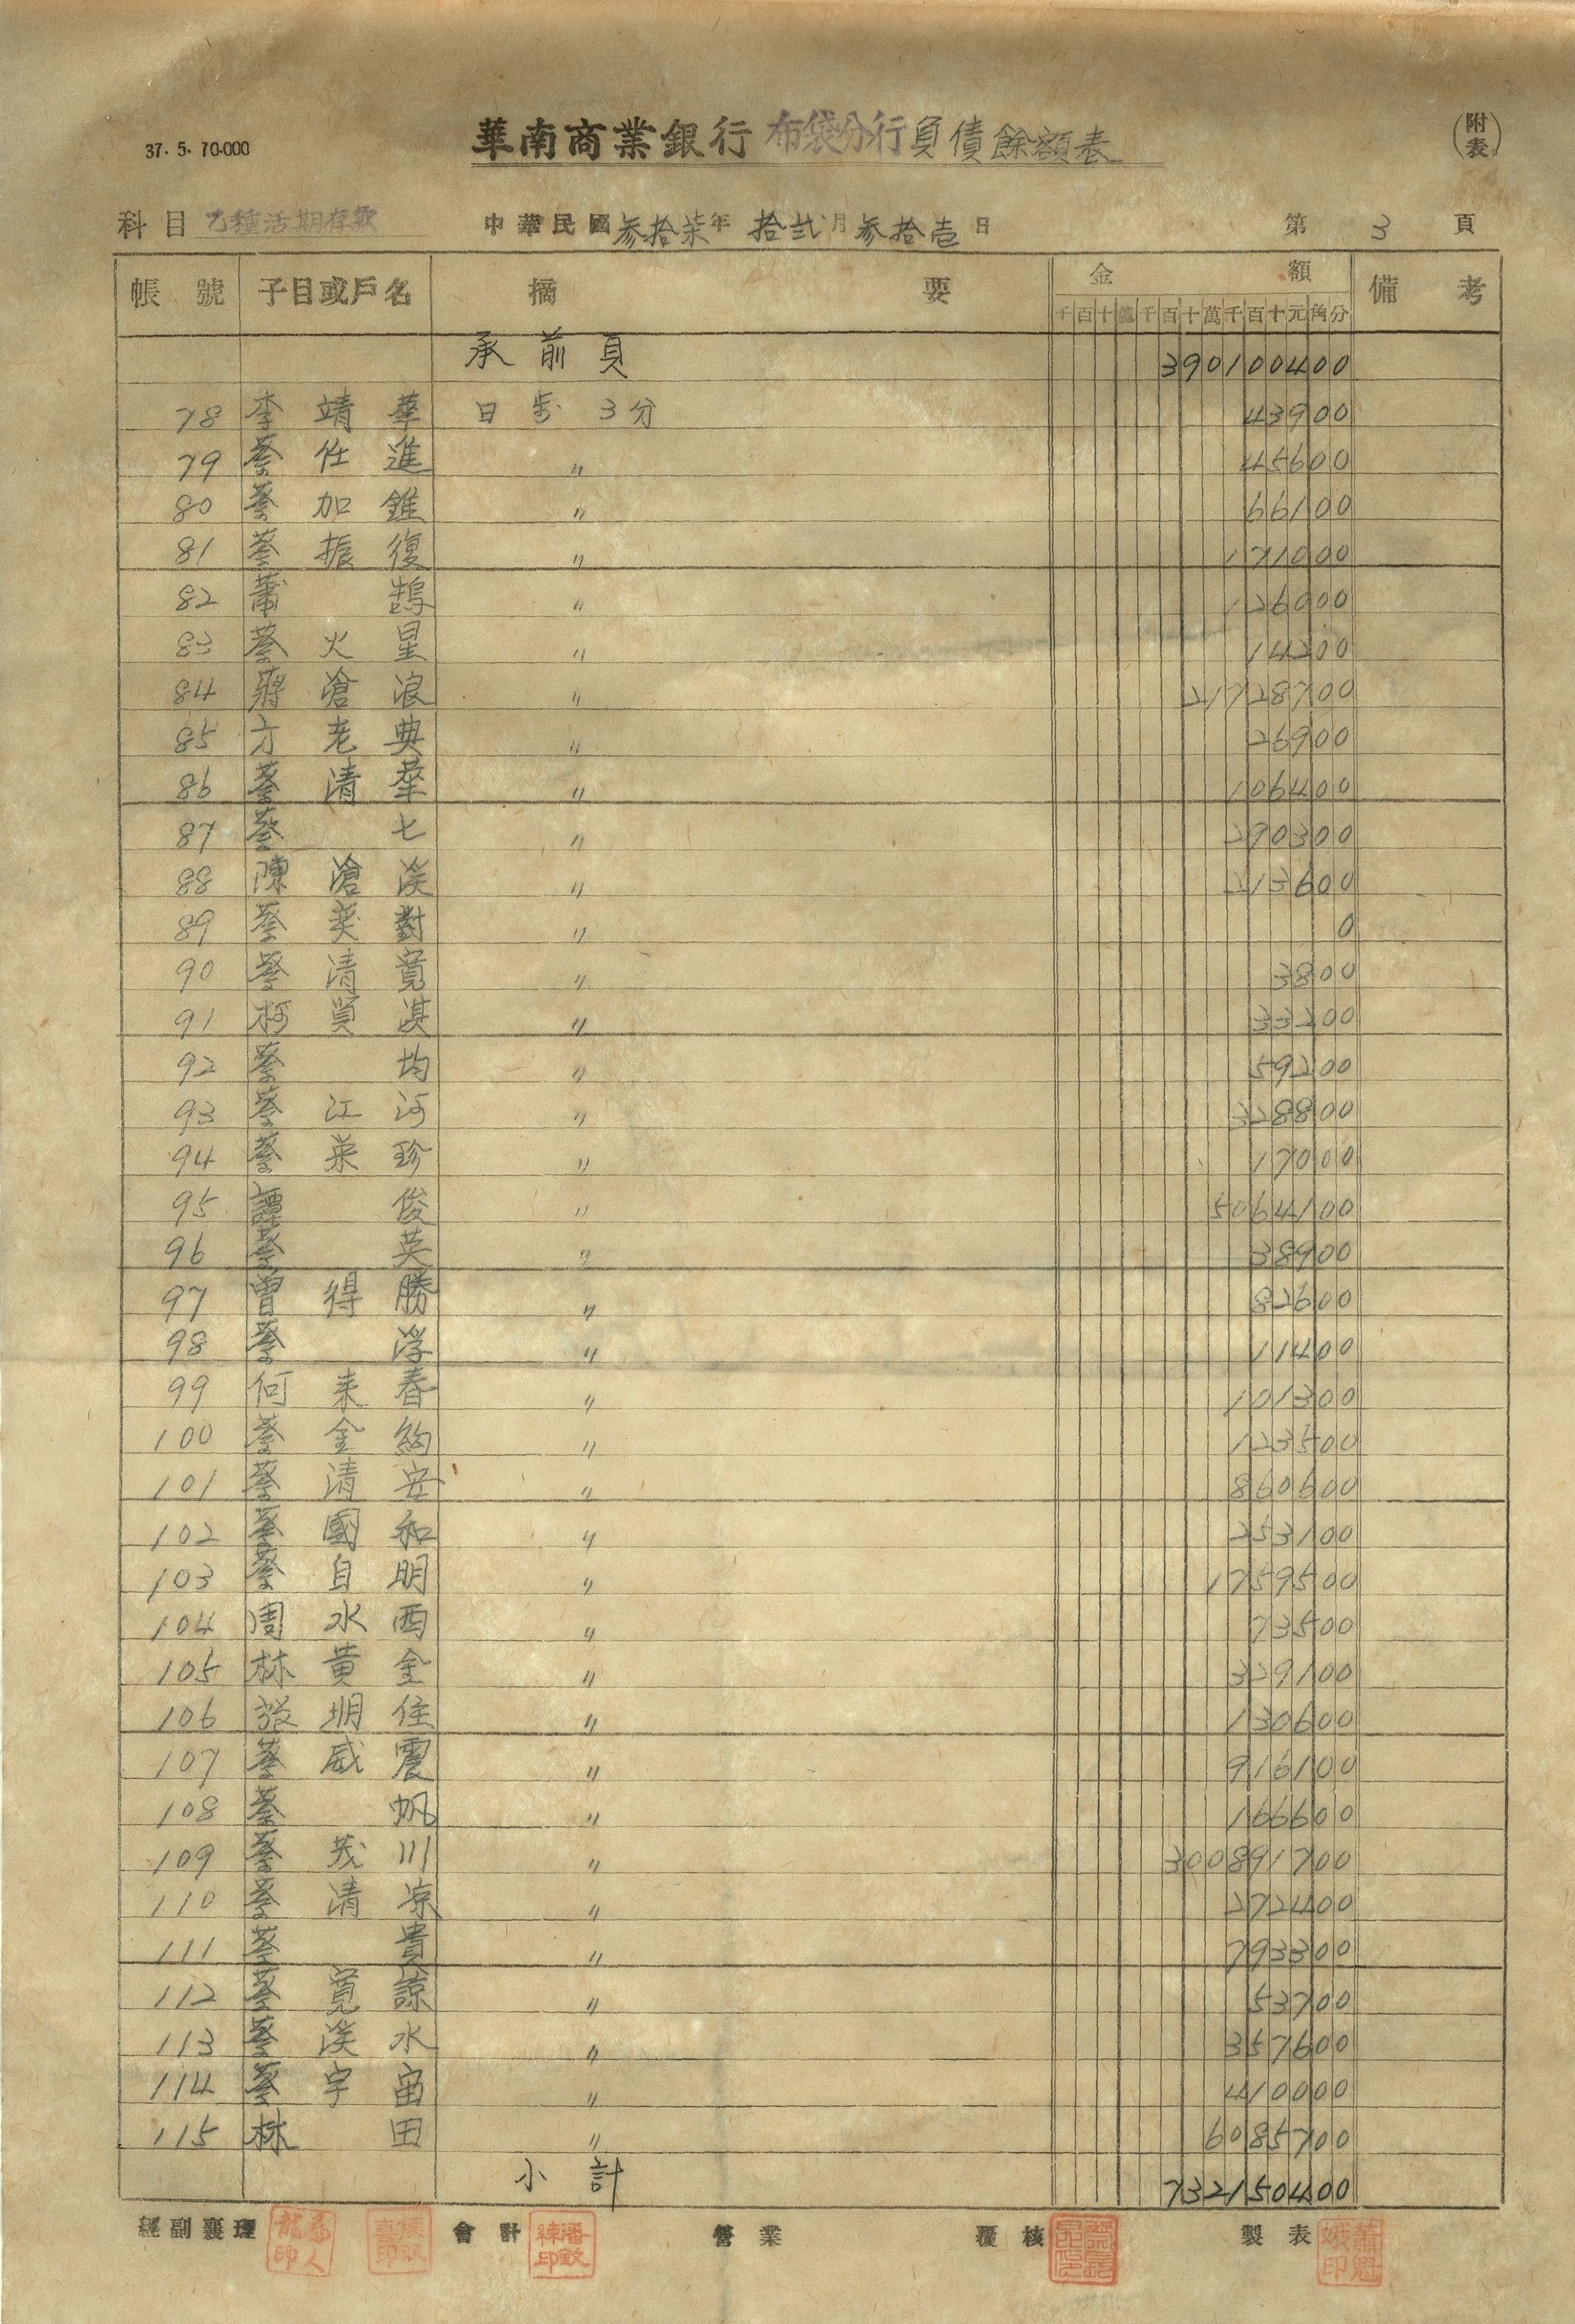 37.5.70.000
華南商業銀行 布袋分行 負債餘額表
(附表)
科目 乙種活期存款 中華民國參拾柒年 拾弍月 參拾壱日 第 3 頁
帳號 子目或戶名 摘要 金額 備考
千百十億千百十萬千百十元角分
承前頁 390100400
78 李靖華 日步 3分 43900
79 蔡任進 〃 45600
80 蔡加錐 〃 66100
81 蔡振復 〃 171000
82 蕭鵠 〃 126000
83 蔡火星 〃 14200
84 蔣滄浪 〃 21728700
85 方老典 〃 26900
86 蔡清華 〃 106400
87 蔡七 〃 290300
88 陳滄溪 〃 213600
89 蔡英對 〃 0
90 蔡清寬 〃 3800
91 柯莫淇 〃 33200
92 蔡均 〃 59200
93 蔡江河 〃 328800
94 蔡菜珍 〃 17000
95 譚俊 〃 5064100
96 蔡英 〃 38900
97 曾得勝 〃 82600
98 蔡浮 〃 11400
99 何来春 〃 101300
100 蔡金鈎 〃 123500
101 蔡清安 〃 860600
102 蔡國和 〃 253100
103 蔡自明 〃 1759500
104 周水西 〃 73500
105 林黃金 〃 329100
106 張堋住 〃 130600
107 蔡威震 〃 916100
108 蔡帆 〃 166600
109 蔡茂川 〃 300891700
110 蔡清凉 〃 272400
111 蔡貴 〃 793300
112 蔡寬諒 〃 53700
113 蔡溪水 〃 357600
114 蔡宇宙 〃 410000
115 林田 〃 6085700
小計 732150400
經副襄理 會計 營業 覆核 製表